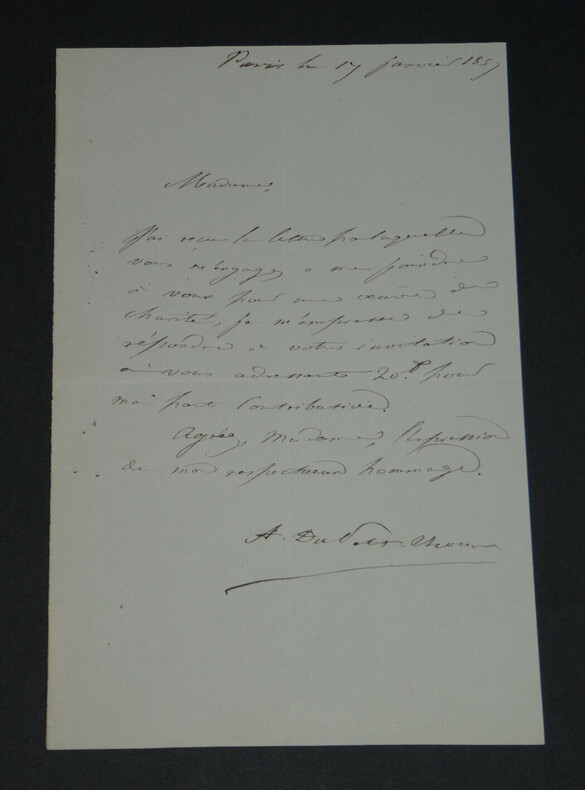 Paris le 17 janvier 1857
Madame,
J'ai reçu la lettre par laquelle
vous m'engagez a me joindre
à vous pour une œuvre de
charité, je m'empresse de
répondre à votre invitation
en vous adressant 20.f pour
ma part contributive.
Agréez, Madame, l'expression
de mon respectueux hommage.
A. Du